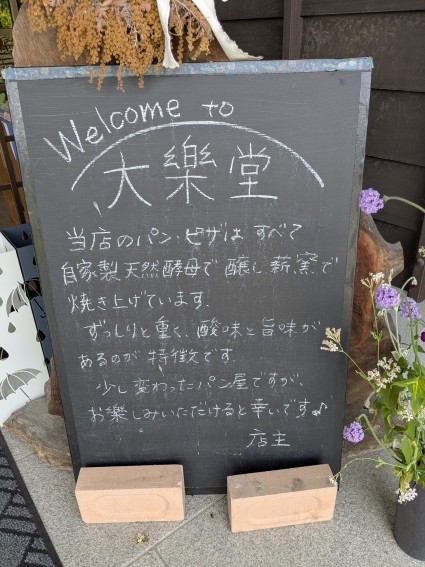 Welcome to
大樂堂
当店のパン・ピザは すべて
自家製 天然酵母で 醸し 薪窯で
焼き上げています。
ずっしりと重く、酸味と旨味が
あるのが 特徴です。
少し変わったパン屋ですが、
お楽しみいただけると幸いです♪
店主